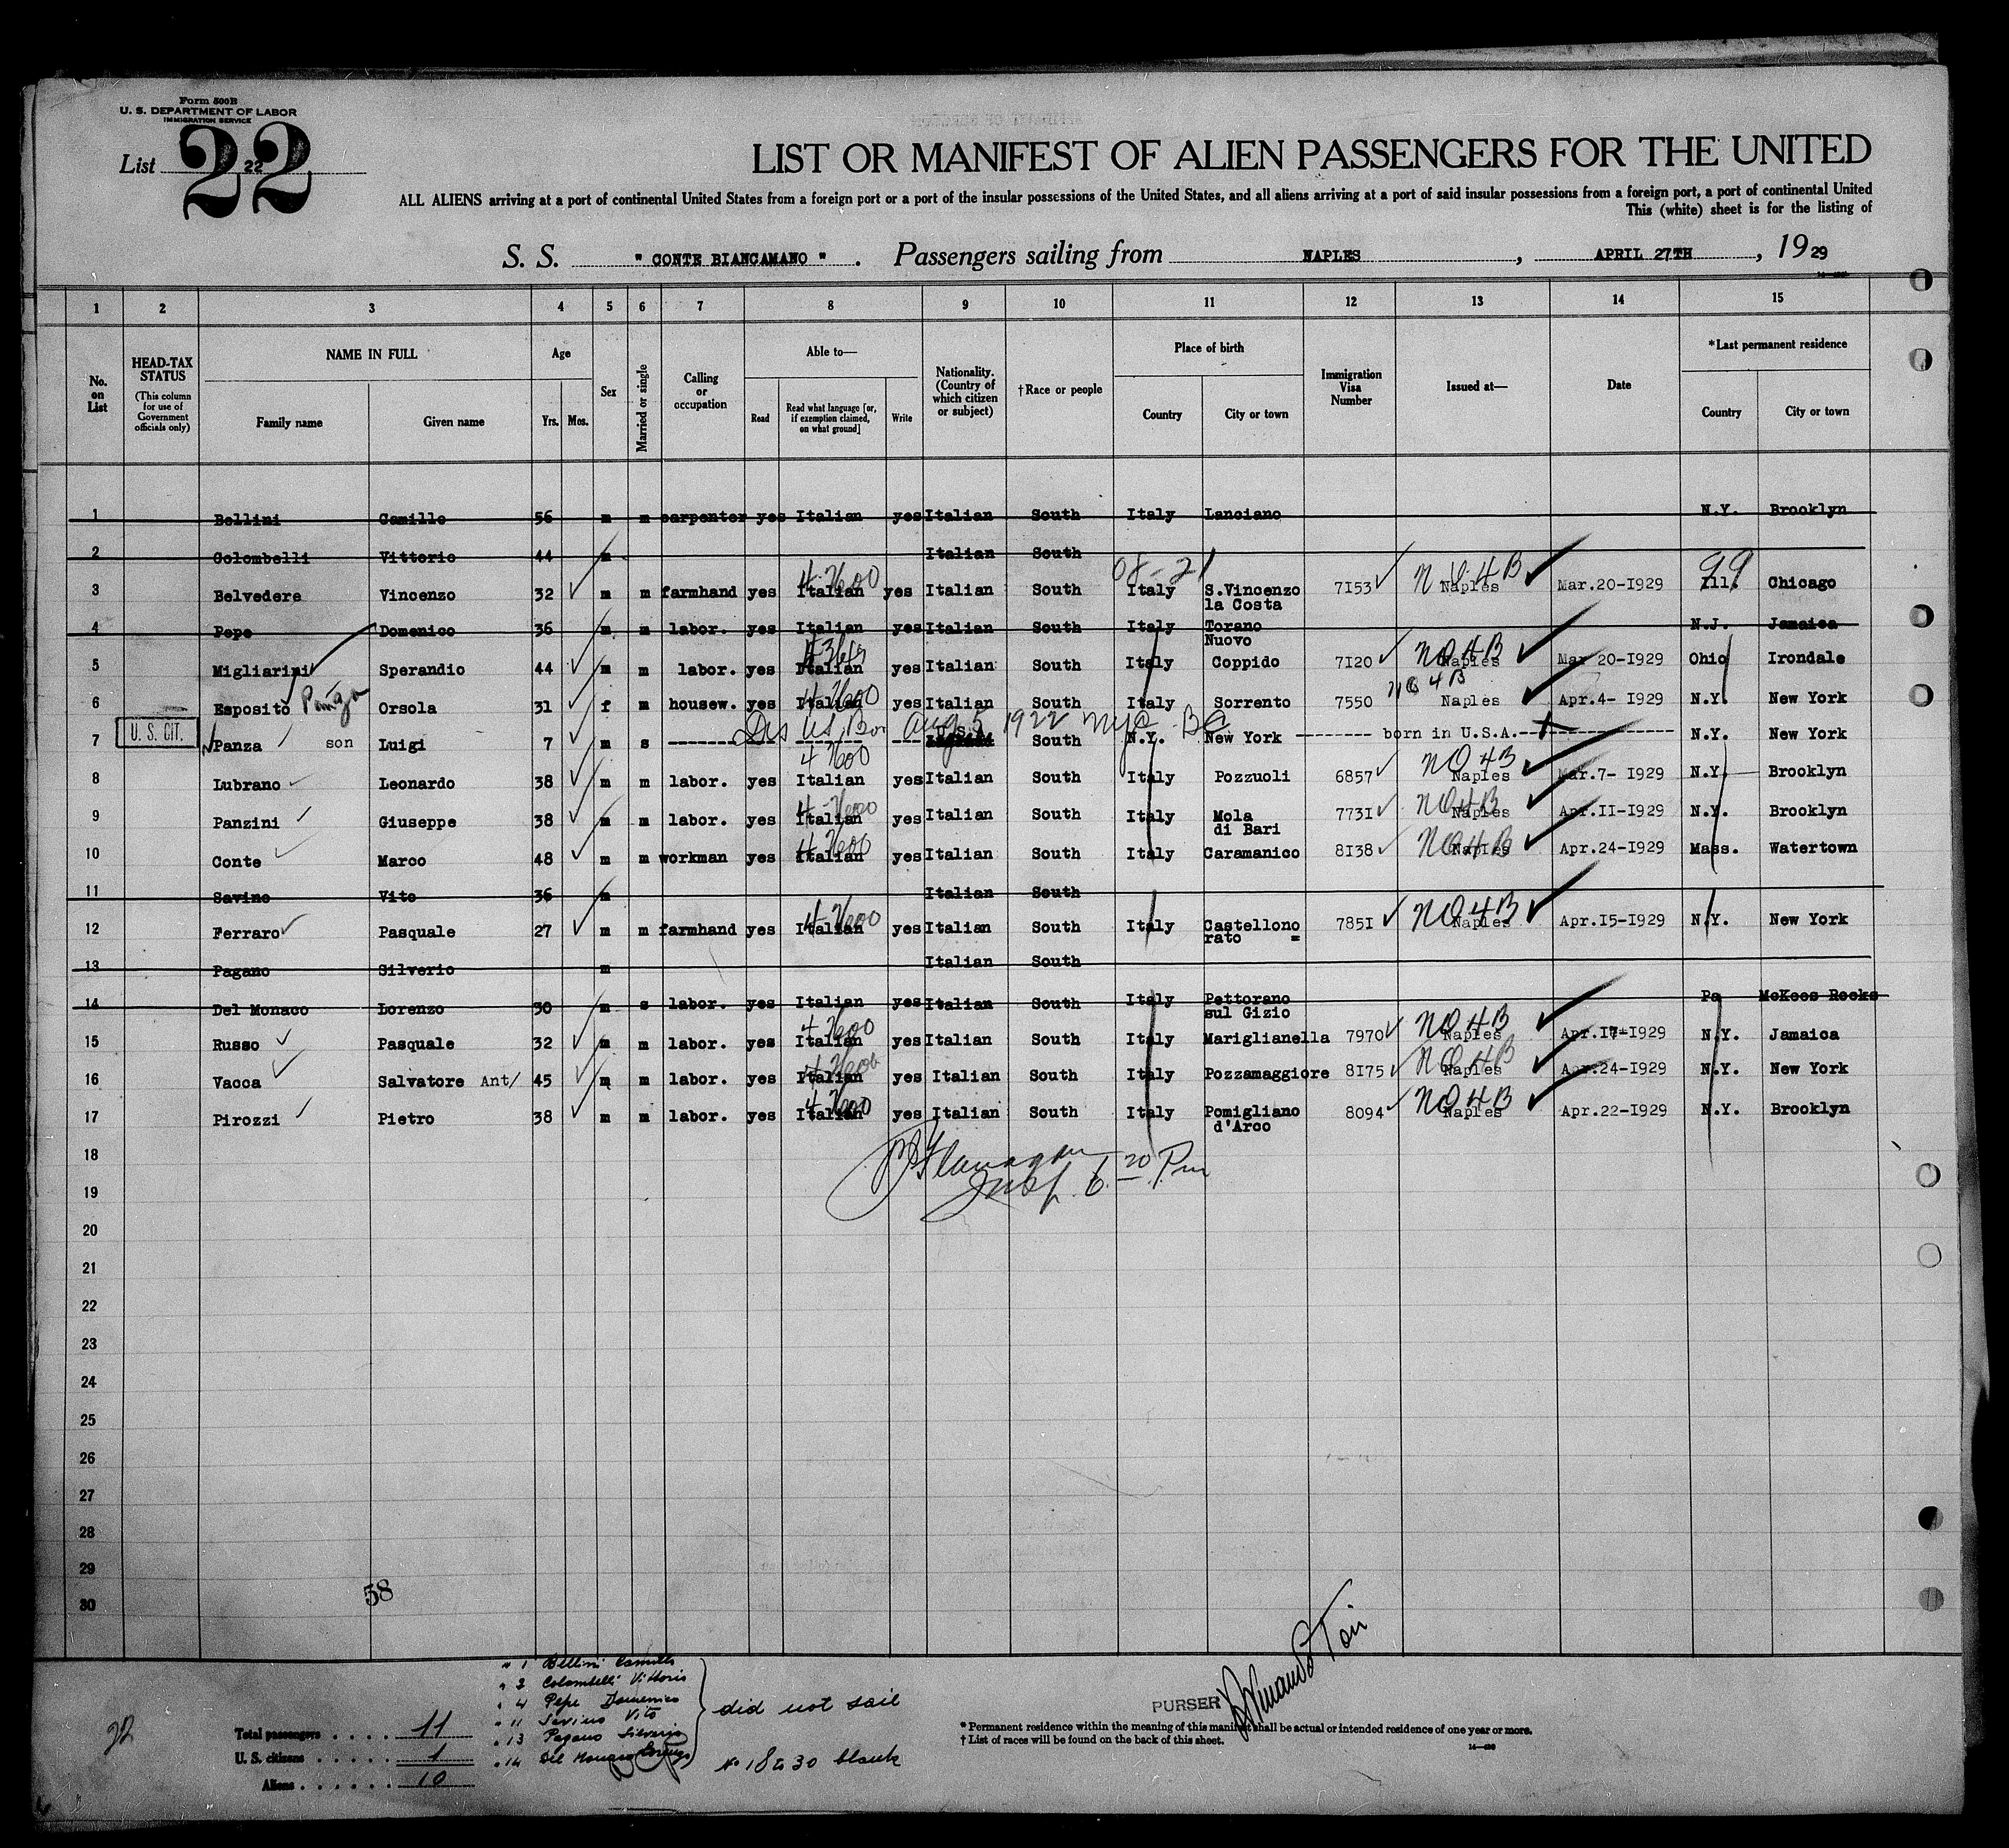 Form 500B
U. S. DEPARTMENT OF LABOR
IMMIGRATION SERVICE
List 22
22
LIST OR MANIFEST OF ALIEN PASSENGERS FOR THE UNITED
ALL ALIENS arriving at a port of continental United States from a foreign port or a port of the insular possessions of the United States, and all aliens arriving at a port of said insular possessions from a foreign port, a port of continental United
This (white) sheet is for the listing of
S. S. " CONTE BIANCAMANO " . Passengers sailing from NAPLES , APRIL 27TH , 1929
1 2 3 4 5 6 7 8 9 10 11 12 13 14 15
No. on List
HEAD-TAX STATUS (This column for use of Government officials only)
NAME IN FULL
Family name Given name
Age
Yrs. Mos.
Sex
Married or single
Calling or occupation
Able to—
Read Read what language [or, if exemption claimed, on what ground] Write
Nationality. (Country of which citizen or subject)
†Race or people
Place of birth
Country City or town
Immigration Visa Number
Issued at—
Date
*Last permanent residence
Country City or town
1 Bellini Camillo 56 m m carpenter yes Italian yes Italian South Italy Lanciano N.Y. Brooklyn
2 Colombelli Vittorio 44 m Italian South
4-7600 08-21 NO 4B 99
3 Belvedere Vincenzo 32 m m farmhand yes Italian yes Italian South Italy S.Vincenzo la Costa 7153 Naples Mar.20-1929 Ill. Chicago
4 Pepe Domenico 36 m m labor. yes Italian yes Italian South Italy Torano Nuovo N.J. Jamaica
NO 4B
5 Migliarini Sperandio 44 m m labor. yes Italian yes Italian South Italy Coppido 7120 Naples Mar 20-1929 Ohio Irondale
4-7600 NO 4B
6 Esposito Panza Orsola 31 f m housew. yes Italian yes Italian South Italy Sorrento 7550 Naples Apr.4- 1929 N.Y. New York
U. S. CIT.
Aug 5 1922 NYC
7 Panza son Luigi 7 m s U.S.A. South N.Y. New York born in U.S.A. N.Y. New York
4 7600 NO 4B
8 Lubrano Leonardo 38 m m labor. yes Italian yes Italian South Italy Pozzuoli 6857 Naples Mar.7- 1929 N.Y. Brooklyn
4-7600 NO 4B
9 Panzini Giuseppe 38 m m labor. yes Italian yes Italian South Italy Mola di Bari 7731 Naples Apr.11-1929 N.Y. Brooklyn
4-7600 NO 4B
10 Conte Marco 48 m m workman yes Italian yes Italian South Italy Caramanico 8138 Naples Apr.24-1929 Mass. Watertown
11 Savino Vito 36 m Italian South
4-7600 NO 4B
12 Ferraro Pasquale 27 m m farmhand yes Italian yes Italian South Italy Castellono rato = 7851 Naples Apr.15-1929 N.Y. New York
13 Pagano Silverio m Italian South
14 Del Monaco Lorenzo 30 m s labor. yes Italian yes Italian South Italy Pettorano sul Gizio Pa McKees Rocks
4-7600 NO 4B
15 Russo Pasquale 32 m m labor. yes Italian yes Italian South Italy Mariglianella 7970 Naples Apr.17-1929 N.Y. Jamaica
4-7600 NO 4B
16 Vacca Salvatore Ant/ 45 m m labor. yes Italian yes Italian South Italy Pozzamaggiore 8175 Naples Apr.24-1929 N.Y. New York
4-7600 NO 4B
17 Pirozzi Pietro 38 m m labor. yes Italian yes Italian South Italy Pomigliano d'Arco 8094 Naples Apr.22-1929 N.Y. Brooklyn
18 Flanagan
19 Insp. 6 20 Pm
20
21
22
23
24
25
26
27
28
29
30
58
" 1 Bellini Camillo
" 2 Colombelli Vittorio
" 4 Pepe Domenico
" 11 Savino Vito
" 13 Pagano Silverio
" 14 Del Monaco Lorenzo
did not sail
No 18 to 30 blank
Total passengers . . . . 11
U. S. citizens . . . . . 1
Aliens . . . . . . 10
22
PURSER
* Permanent residence within the meaning of this manifest shall be actual or intended residence of one year or more.
† List of races will be found on the back of this sheet.